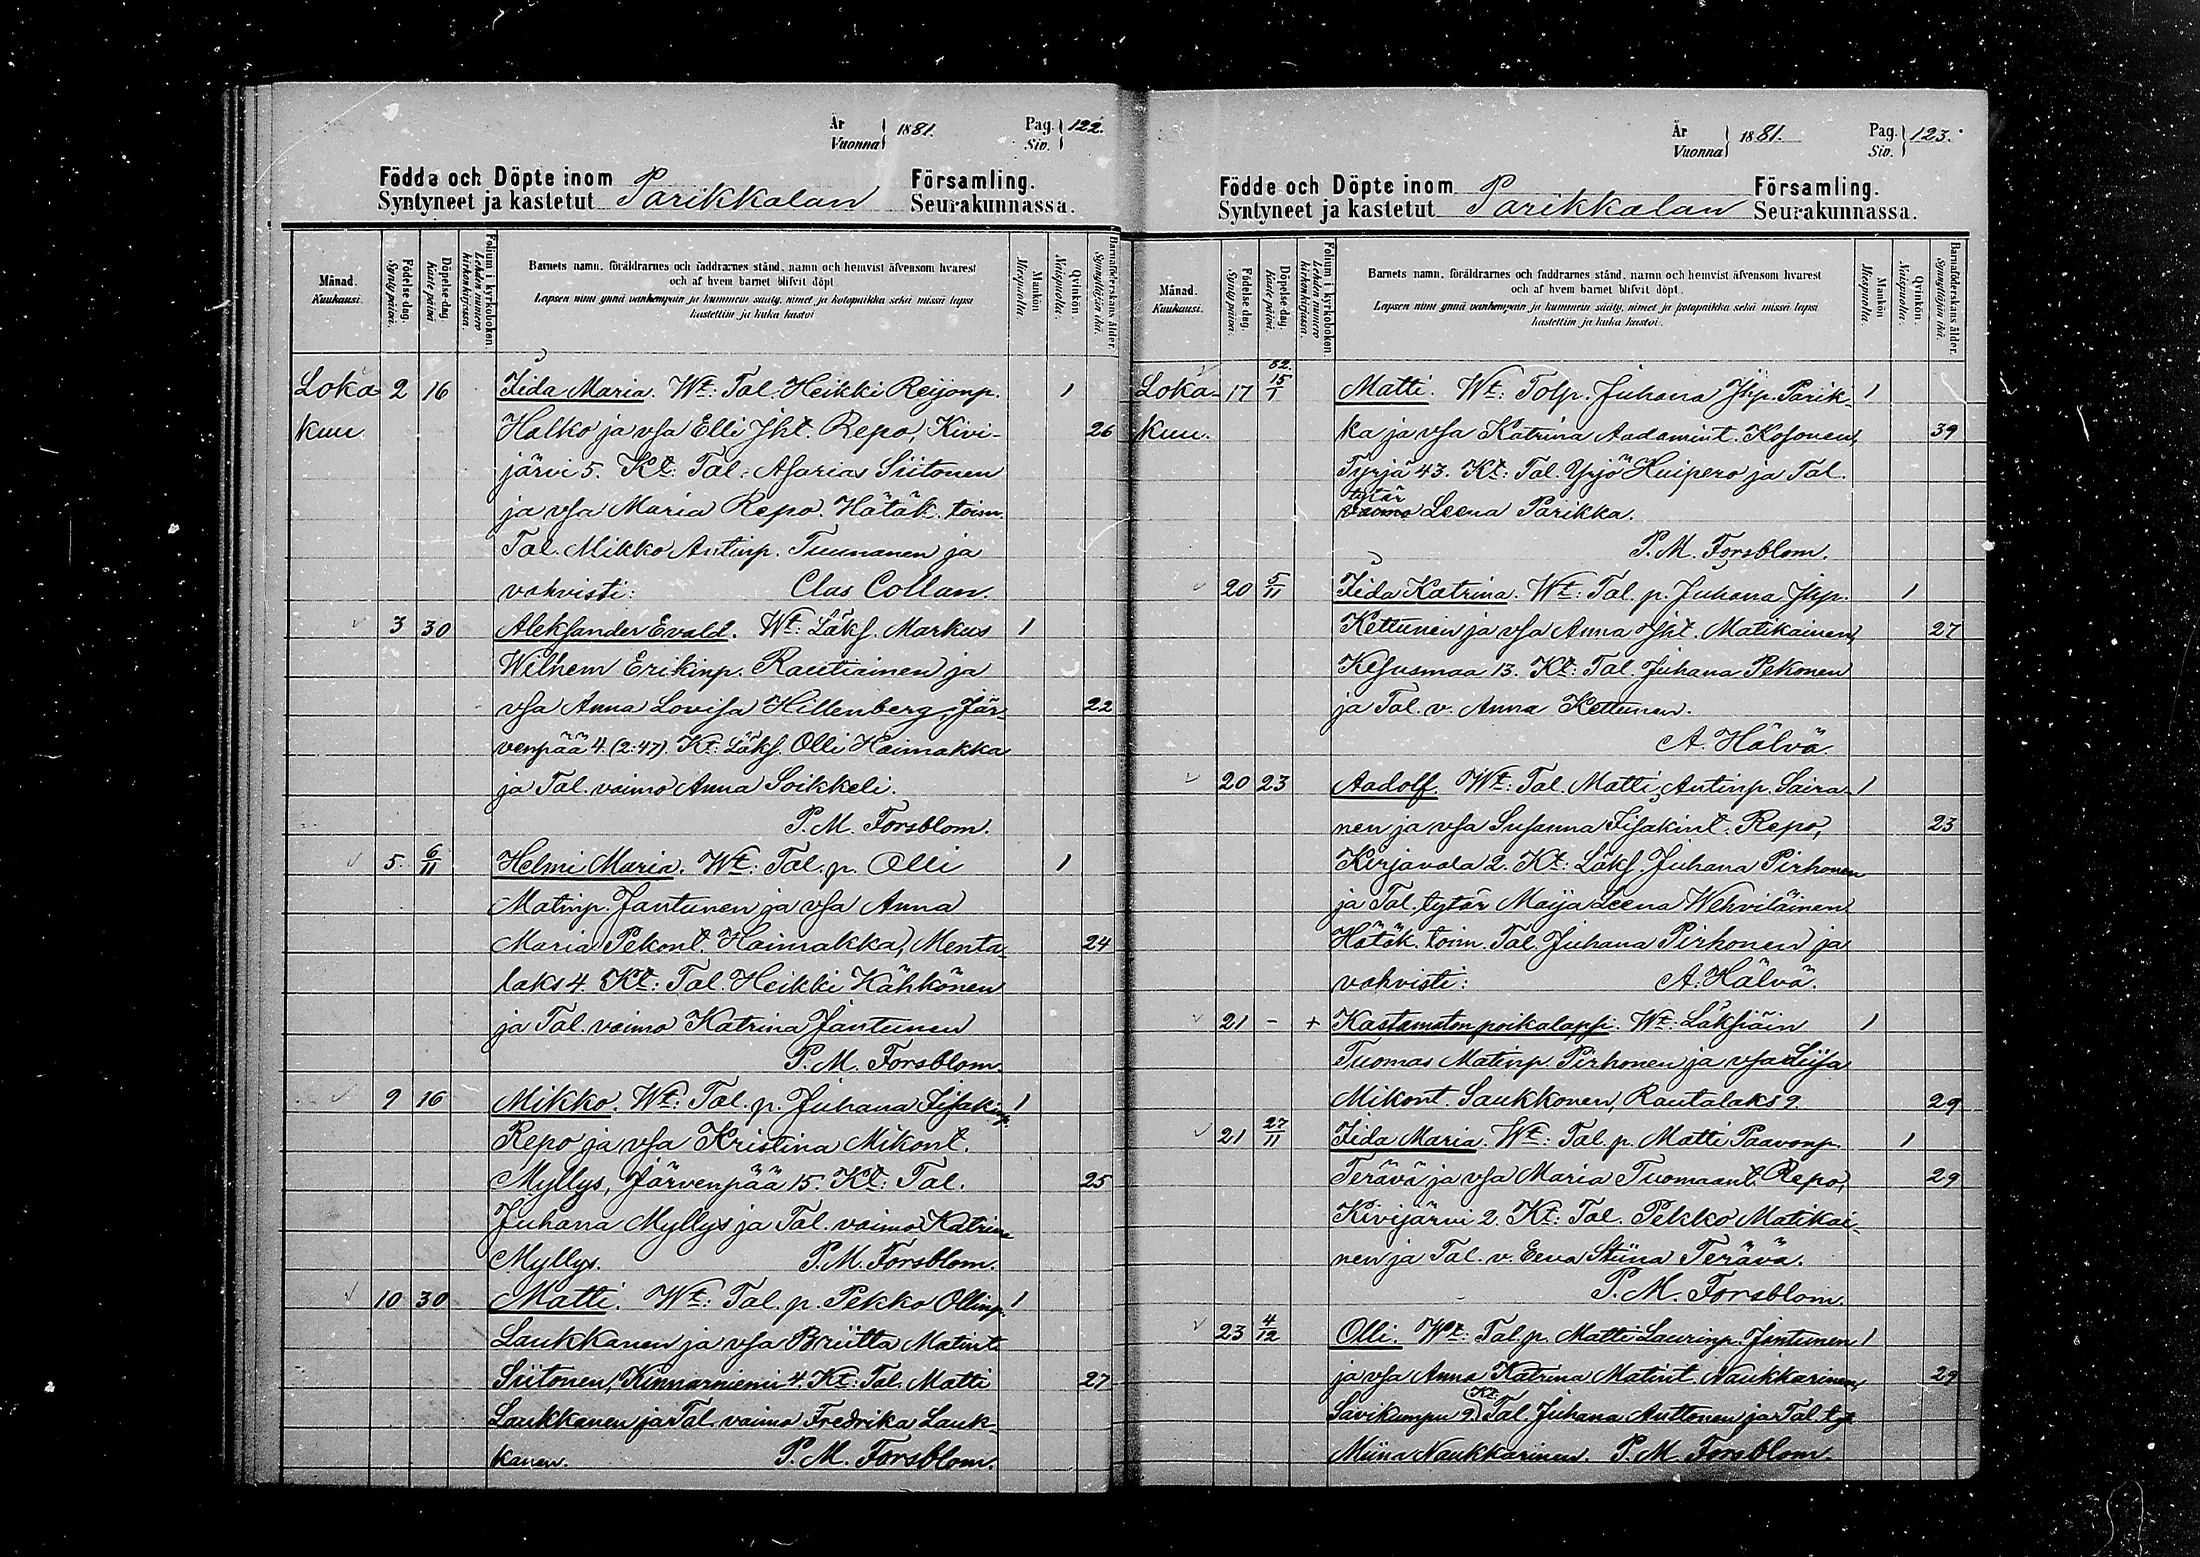 År Vuonna 1881. Pag. Siv. 122.
Födda och Döpte inom Parikkalan Församling.
Syntyneet ja kastetut Seurakunnassa.
Månad. Kuukausi. Födelse-dag. Synty päivä. Döpelse-dag. Kaste päivä. Folium i kyrkoboken. Lehden numero kirkonkirjassa. Barnets namn, föräldrarnes och faddrarnes stånd, namn och hemvist äfvensom hvarest och af hvem barnet blifvit döpt. Mankön. Miespuolia. Qvinkön. Naispuolia. Barnaföderskans ålder. Synnyttäjän ikä.
Lapsen nimi ynnä vanhempain ja kummein sääty, nimet ja kotopaikka sekä missä lapsi kastettiin ja kuka kastoi
Loka- 2 16 Iida Maria. Wt: Tal. Heikki Reijonp. 1
kuu. Halko ja vsa Elli Jht. Repo, Kivi- 26
järvi 5. Kt: Tal. Asarias Siitonen
ja vsa Maria Repo. Hätäk. toim.
Tal. Mikko Antinp. Tuunanen ja
vahvisti: Clas Collan.
3 30 Aleksander Evald. Wt: Läks. Markus 1
Wilhem Erikinp. Rautiainen ja
vsa Anna Lovisa Hillenberg, Jär- 22
venpää 4. (2:47). Kt: Läks. Olli Haimakka
ja Tal. vaimo Anna Soikkeli.
P. M. Forsblom.
5. 6/11 Helmi Maria. Wt: Tal. p. Olli 1
Matinp. Jantunen ja vsa Anna
Maria Pekont. Haimakka, Menta- 24
laks 4. Kt: Tal. Heikki Kähkönen
ja Tal. vaimo Katrina Jantunen
P. M. Forsblom.
9 16 Mikko. Wt: Tal. p. Juhana Iisakinp. 1
Repo ja vsa Kristina Mikont.
Myllys, Järvenpää 15. Kt: Tal. 25
Juhana Myllys ja Tal. vaimo Katrina
Myllys. P. M. Forsblom.
10 30 Matti. Wt: Tal. p. Pekko Ollinp. 1
Laukkanen ja vsa Briitta Matint.
Siitonen, Kinnarniemi 4. Kt: Tal. Matti 27
Laukkanen ja Tal. vaimo Fredrika Lauk-
kanen. P. M. Forsblom.
År Vuonna 1881. Pag. Siv. 123.
Födde och Döpte inom Parikkalan Församling.
Syntyneet ja kastetut Seurakunnassa.
Månad. Kuukausi. Födelse-dag. Synty päivä. Döpelse-dag. Kaste päivä. Folium i kyrkoboken. Lehden numero kirkonkirjassa. Barnets namn, föräldrarnes och faddrarnes stånd, namn och hemvist äfvensom hvarest och af hvem barnet blifvit döpt. Mankön. Miespuolia. Qvinkön. Naispuolia. Barnaföderskans ålder. Synnyttäjän ikä.
Lapsen nimi ynnä vanhempain ja kummein sääty, nimet ja kotopaikka sekä missä lapsi kastettiin ja kuka kastoi.
82.
Loka- 17 15/1 Matti. Wt: Tolp. Juhana Jhp. Parik- 1
kuu. ka ja vsa Katrina Aadamint. Kosonen, 39
Tyrjä 43. Kt: Tal. Yrjö Huipero ja Tal.
tytär
vaimo Leena Parikka.
P. M. Forsblom.
20 5/11 Iida Katrina. Wt: Tal. p. Juhana Jhp. 1
Kettunen ja vsa Anna Jht. Matikainen, 27
Kesusmaa 13. Kt: Tal. Juhana Pekonen
ja Tal. v. Anna Kettunen.
A. Hälvä.
20 23 Aadolf. Wt: Tal. Matti Antinp. Saira- 1
nen ja vsa Susanna Iisakint. Repo, 23
Kirjavala 2. Kt: Läks. Juhana Pirhonen
ja Tal. tytär Maija Leena Wehviläinen
Hätäk. toim. Tal. Juhana Pirhonen ja
vahvisti: A. Hälvä.
21 - + Kastamaton poikalapsi. Wt: Läksiäin 1
Tuomas Matinp. Pirhonen ja vsa Liisa
Mikont. Saukkonen, Rautalaks 9. 29
21 27/11 Iida Maria. Wt: Tal. p. Matti Paavonp. 1
Terävä ja vsa Maria Tuomaant. Repo, 29
Kivijärvi 2. Kt: Tal. Pekko Matikai-
nen ja Tal. v. Eeva Stiina Terävä.
P. M. Forsblom.
23 4/12 Olli. Wt: Tal. p. Matti Laurinp. Jantunen 1
ja vsa Anna Katrina Matint. Naukkarinen, 29
Savikumpu 9. Kt: Tal. Juhana Anttonen ja Tal. tyt.
Miina Naukkarinen. P. M. Forsblom.